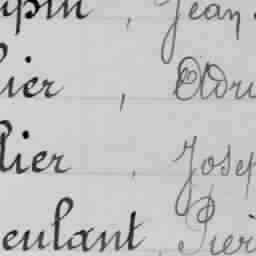 upin, Jean
ier, Adri
lier, Josep
eulant, Pier